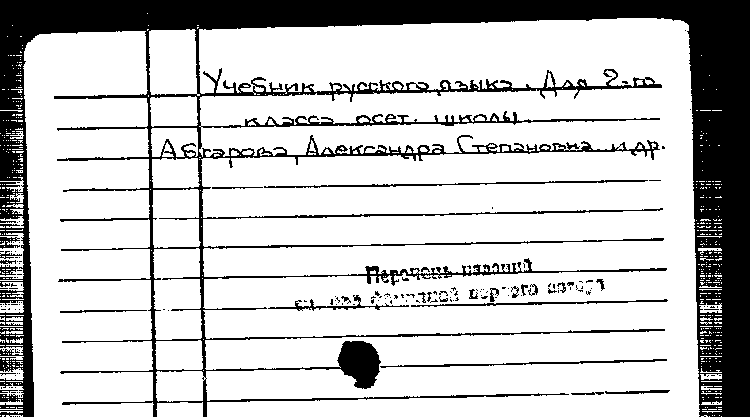 Учебник русского языка. Для 2-го
класса осет. школы.
Абгарова, Александра Степановна и др.
Перечень изданий
см. под фамилией первого автора